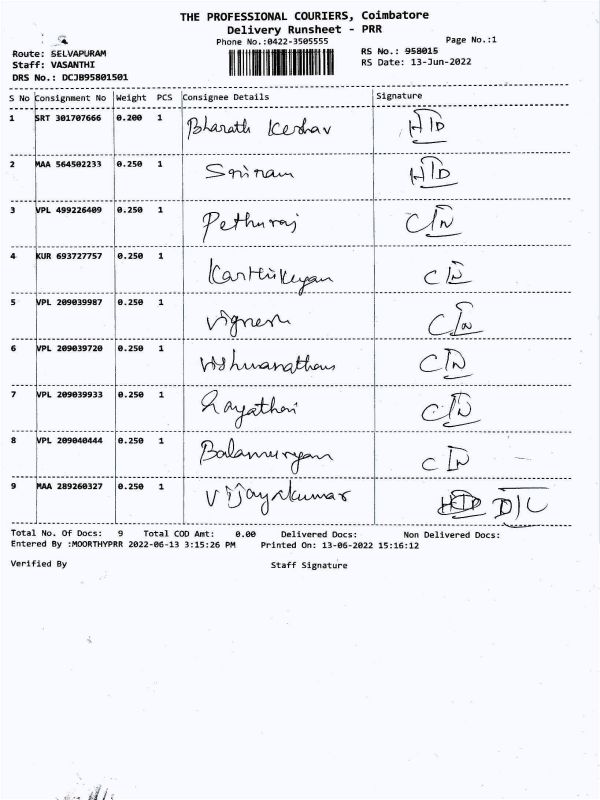 THE PROFESSIONAL COURIERS, Coimbatore
Delivery Runsheet - PRR
Phone No.:0422-3505555 Page No.:1
Route: SELVAPURAM RS No.: 958015
Staff: VASANTHI RS Date: 13-Jun-2022
DRS No.: DCJB95801501
S No Consignment No Weight PCS Consignee Details Signature
1 SRT 301707666 0.200 1 Bharath Keshav HTD
2 MAA 564502233 0.250 1 Sriram HTD
3 VPL 499226409 0.250 1 Pethuraj CIN
4 KUR 693727757 0.250 1 Karthikeyan CIN
5 VPL 209039987 0.250 1 Vignesh CIN
6 VPL 209039720 0.250 1 Vishwanathan CIN
7 VPL 209039933 0.250 1 CIN
8 VPL 209040444 0.250 1 Balamurugan CIN
9 MAA 289260327 0.250 1 Vijayakumar D/L
Total No. Of Docs: 9 Total COD Amt: 0.00 Delivered Docs: Non Delivered Docs:
Entered By :MOORTHYPRR 2022-06-13 3:15:26 PM Printed On: 13-06-2022 15:16:12
Verified By Staff Signature